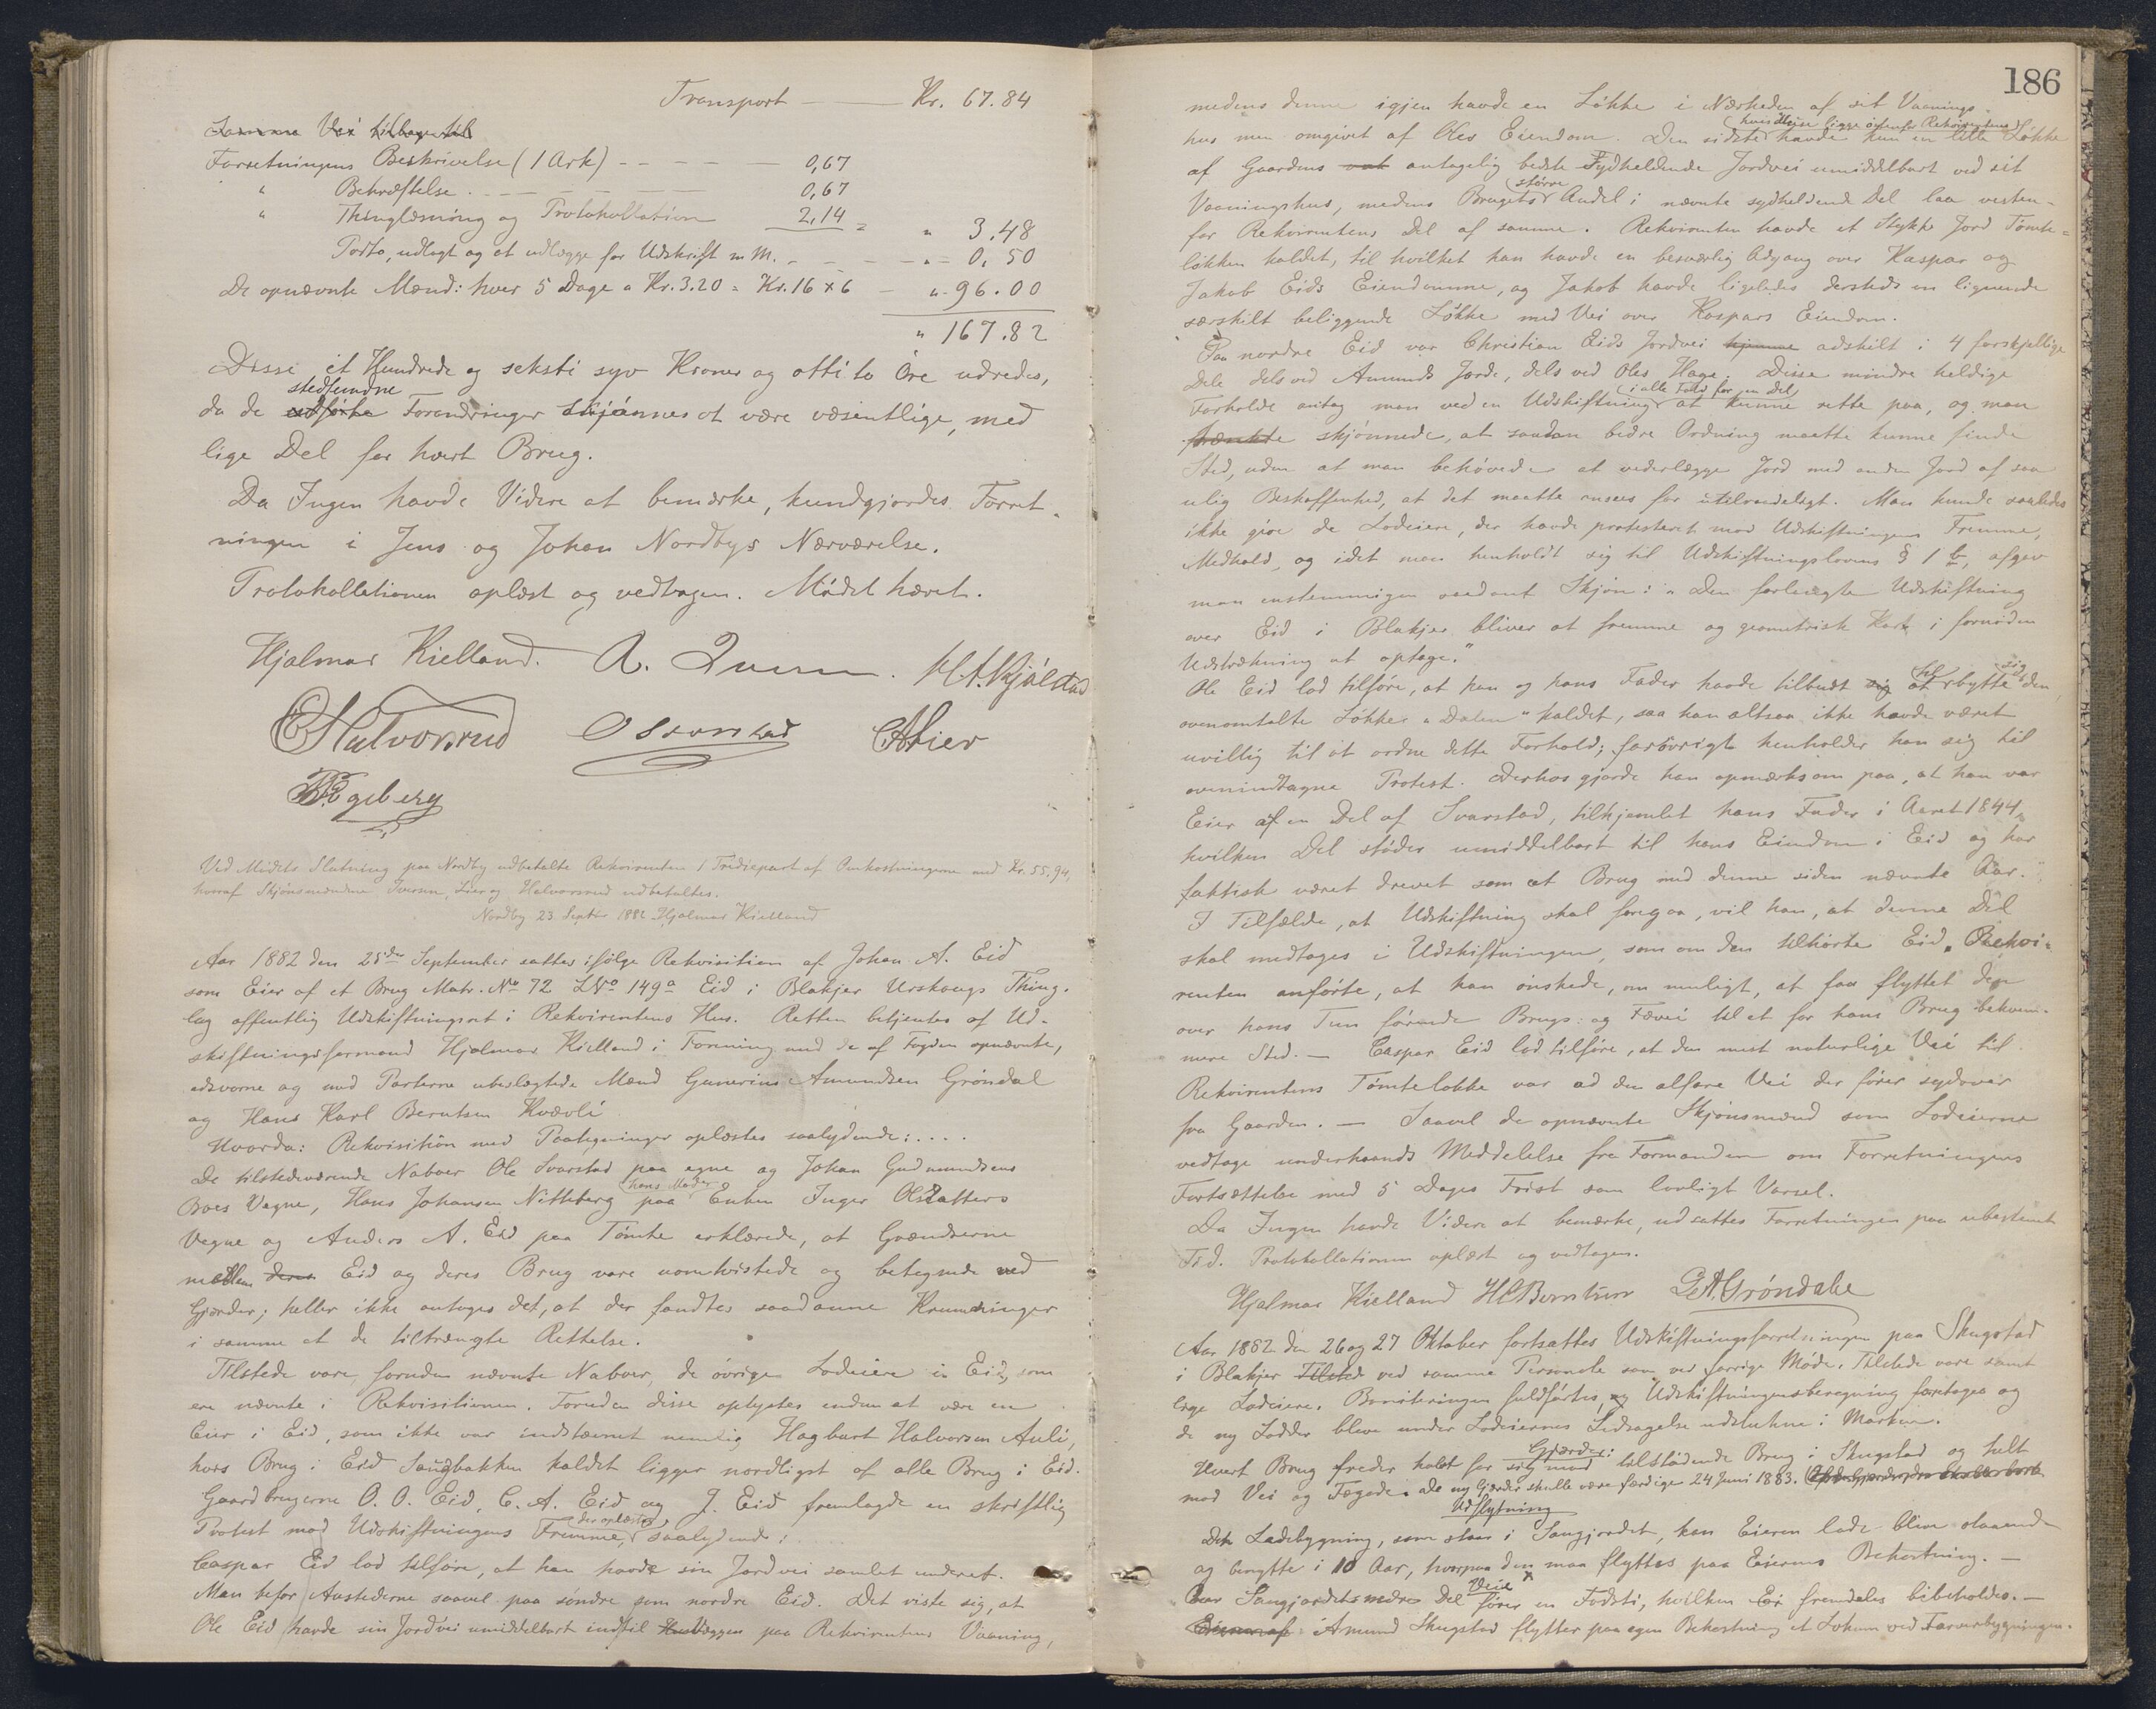 Transport — Kr. 67.84
Samme Vei tilbage til
Forretningens Beskrivelse (1 Ark) - - - - 0,67
" Bekræftelse - - - - 0,67
" Thinglæsning og Protokollation 2,14 = " 3.48
Porto, udlagt og at udlægge for Udskrift m. M. - - - - " 0.50
De opnævnte Mænd: hver 5 Dage a Kr. 3.20 = Kr. 16 x 6 — " 96.00
" 167.82
Disse et Hundrede og seksti syv Kroner og otti to Öre udredes,
stedfundne
da de udførte Forandringer skjønnes at være væsentlige, med
lige Del for hvert Brug.
Da Ingen havde Videre at bemærke, kundgjordes Forret-
ningen i Jens og Johan Nordbys Nærværelse.
Protokollationen oplæst og vedtagen. Mödet hævet.
Hjalmar Kielland.
EHalvorsrud CALier
Fogeberg
Ved Mödets Slutning paa Nordby udbetalte Rekvirenten 1 Trediepart af Omkostningerne med Kr. 55,94,
hvoraf Skjönsmændene Iversen, Lier og Halvorsrud udbetaltes.
Nordby 23 Septbr 1882 Hjalmar Kielland
Aar 1882 den 25de September sattes ifölge Rekvisition af Johan A. Eid
som Eier af et Brug Matr. No 72 LNo 149a Eid i Blakjer Urskougs Thing-
lag offentlig Udskiftningsret i Rekvirentens Hus. Retten betjentes af Ud-
skiftningsformand Hjalmar Kielland i Forening med de af Fogden opnævnte,
edsvorne og med Parterne ubeslægtede Mænd Gunerius Amundsen Gröndal
og Hans Karl Berntsen Kvævli
Hvorda: Rekvisition med Paategninger oplæstes saalydende: . . . .
De tilstedeværende Naboer Ole Svarstad paa egne og Johan Gudmundsens
hans Moder
Boes Vegne, Hans Johansen Nitteberg paa Enken Inger Olsdatters
Vegne og Anders A. Eid paa Tömte erklærede, at Grændserne
mellem deres Eid og deres Brug vare uomtvistede og betegnede ved
Gjærder; heller ikke antoges det, at der fandtes saadanne Krumninger
i samme at de tiltrængte Rettelse.
Tilstede vare, foruden nævnte Naboer, de övrige Lodeiere i Eid, som
ere nævnte i Rekvisitionen. Foruden disse oplystes endnu at være en
Eier i Eid, som ikke var indstævnet nemlig Hagbart Halvorsen Auli,
hvis Brug i Eid Sangbakken kaldet ligger nordligst af alle Brug i Eid.
Gaardbrugerne O. O. Eid, C. A. Eid og J. Eid fremlagde en skriftlig
der oplæstes
Protest mod Udskiftningens Fremme, saalydende: . . . .
Caspar Eid lod tilföre, at han havde sin Jordvei samlet undtaget.
Man befor Aastederne saavel paa söndre som nordre Eid. Det viste sig, at
Ole Eid havde sin Jordvei umiddelbart indtil Husvæggen paa Rekvirentens Vaaning,
186
medens denne igjen havde en Lökke i Nærheden af sit Vaanings-
hvis Huse ligge östenfor Rekvirentens
hus men omgivet af Oles Eiendom. Den sidste havde kun en liden Lökke
af Gaardens antagelig bedste sydheldende Jordvei umiddelbart ved sit
större
Vaaningshus, medens Brugets Andel i nævnte sydheldende Del laa vesten-
for Rekvirentens Del af samme. Rekvirenten havde et Stykke Jord Tömte-
lökken kaldet, til hvilket han havde en besværlig Adgang over Kaspar og
Jakob Eids Eiendomme, og Jakob havde ligeledes dersteds en lignende
særskilt beliggende Lökke med Vei over Kaspars Eiendom.
Paa nordre Eid var Christian Eids Jordvei hjemme adskilt i 4 forskjellige
Dele dels ved Amunds Jorde, dels ved Oles Hage. Disse mindre heldige
i alle Fald for en Del
Forholde antog man ved en Udskiftning at kunne rette paa, og man
tænkte skjönnede, at saadan bedre Ordning maatte kunne finde
Sted, uden at man behövede at vederlægge Jord med anden Jord af saa
ulig Beskaffenhed, at det maatte ansees for utilraadeligt. Man kunde saaledes
ikke give de Lodeiere, der havde protesteret mod Udskiftningens Fremme,
Medhold, og idet man henholdt sig til Udskiftningslovens § 1 b, afgav
man enstemmigen saadant Skjön: "Den forlangte Udskiftning
over Eid i Blakjer bliver at fremme og geometrisk Kart i fornöden
Udstrækning at optage."
til sig
Ole Eid lod tilföre, at han og hans Fader havde tilbudt sig at bytte den
ovenomtalte Lökke "Dalen" kaldet, saa han altsaa ikke havde været
uvillig til at ordne dette Forhold; forövrigt henholder han sig til
ovenindtagne Protest. Derhos gjorde han opmærksom paa, at han var
Eier af en Del af Svarstad, tilhjemlet hans Fader i Aaret 1844,
hvilken Del stöder umiddelbart til hans Eiendom i Eid og har
faktisk været drevet som et Brug med denne siden nævnte Aar.
I Tilfælde, at Udskiftning skal foregaa, vil han, at denne Del
skal medtages i Udskiftningen, som om den tilhörte Eid. Rekvi-
renten anförte, at han önskede, om muligt, at faa flyttet den
over hans Tun förende Brugs- og Fævei til et for hans Brug bekvem-
mere Sted. — Caspar Eid lod tilföre, at den mest naturlige Vei til
Rekvirentens Tömtelökke var ad den alfare Vei der förer sydover
fra Gaarden. — Saavel de opnævnte Skjönsmænd som Lodeierne
vedtage underhaands Meddelelse fra Formanden om Forretningens
Fortsættelse med 5 Dages Frist som lovligt Varsel.
Da Ingen havde Videre at bemærke, udsattes Forretningen paa ubestemt
Tid. Protokollationen oplæst og vedtagen.
Hjalmar Kielland HCBerntsen G.A.Grøndahl
Aar 1882 den 26 og 27 Oktober fortsattes Udskiftningsforretningen paa Skugstad
i Blakjer Tilstede ved samme Personale som ved forrige Möde. Tilstede vare samt-
lige Lodeiere. Boniteringen fuldförtes, og Udskiftningsberegning foretoges og
de ny Lodder bleve under Lodeiernes Ledsagelse udstukne i Marken.
Gjærder:
Hvert Brug freder halvt for sig mod tilstödende Brug i Skugstad og helt
mod Vei og Fægade. De ny Gjærder skulle være færdige 24 Juni 1883.
Udflytning
Den Ladebygning, som staar i Sangjordet, kan Eieren lade blive staaende
og benytte i 10 Aar, hvorpaa den maa flyttes paa Eierens Bekostning. —
Veie
Over Sangjordets nedre Del förer en Fodsti, hvilken Ei fremdeles bibeholdes. —
Amund Skugstad flytter paa egen Bekostning et Lokum ved Farverbygningen.